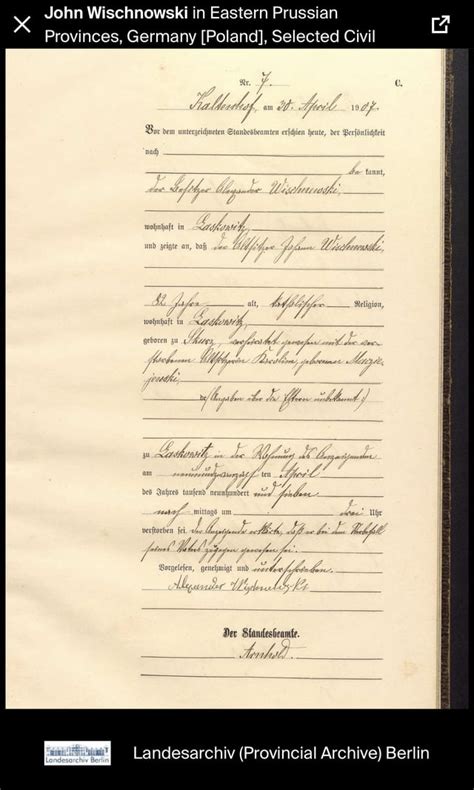 John Wischnowski in Eastern Prussian
Provinces, Germany [Poland], Selected Civil
Nr. 7. C.
am 30. April 1907.
Vor dem unterzeichneten Standesbeamten erschien heute, der Persönlichkeit
nach
be kannt,
der Besitzer Alexander Wischnowski,
wohnhaft in Laskowitz,
und zeigte an, daß der Altsitzer Johann Wischnowski,
82 Jahre alt, katholischer Religion,
wohnhaft in Laskowitz,
geboren zu Skurz, verheiratet gewesen mit der ver-
storbenen Karoline, geborenen
(Angaben über die Eltern unbekannt)
zu Laskowitz in der Wohnung des Anzeigenden
am neunundzwanzig ten April
des Jahres tausend neunhundert und sieben
nach mittags um drei Uhr
verstorben sei. Der Anzeigende erklärte, daß er bei dem Sterbefall
seines Vaters zugegen gewesen sei.
Vorgelesen, genehmigt und unterschrieben.
Alexander
Der Standesbeamte.
Arnhold.
Landesarchiv Berlin
Landesarchiv (Provincial Archive) Berlin